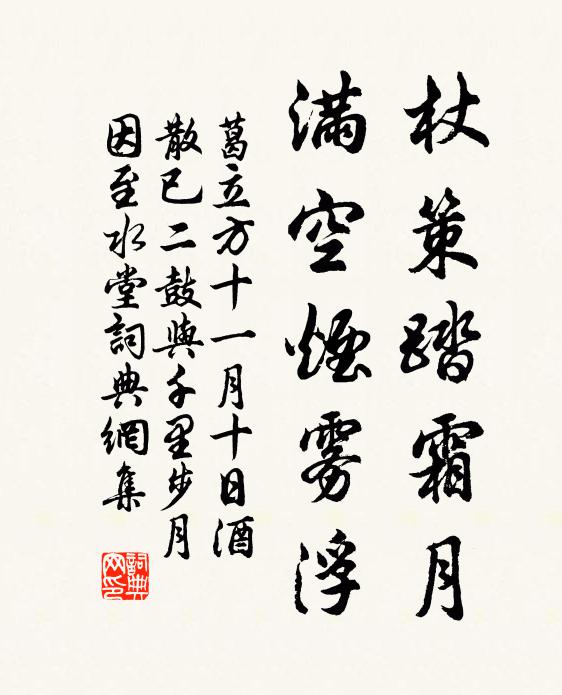 杖策踏霜月
满空烟雾浮
葛立方十一月十日酒
散已二鼓与千里步月
因至水堂詞典網集
詞典
网印